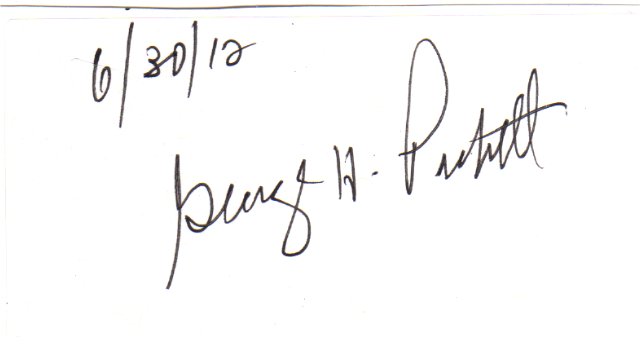 6/30/12
George H. Pickett